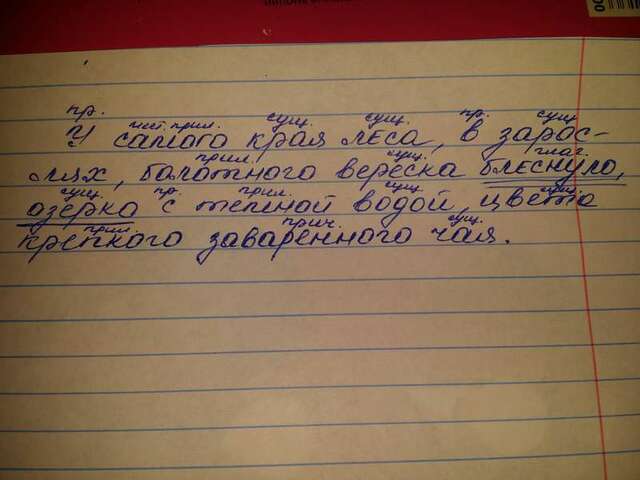 пр. мест. прил. сущ. сущ. пр. сущ.
У самого края леса, в зарос-
прил. сущ. глаг.
лях, балотного вереска блеснуло,
сущ. пр. прил. сущ. сущ.
озерка с темной водой, цвета
прил. прич. сущ.
крепкого заваренного чая.